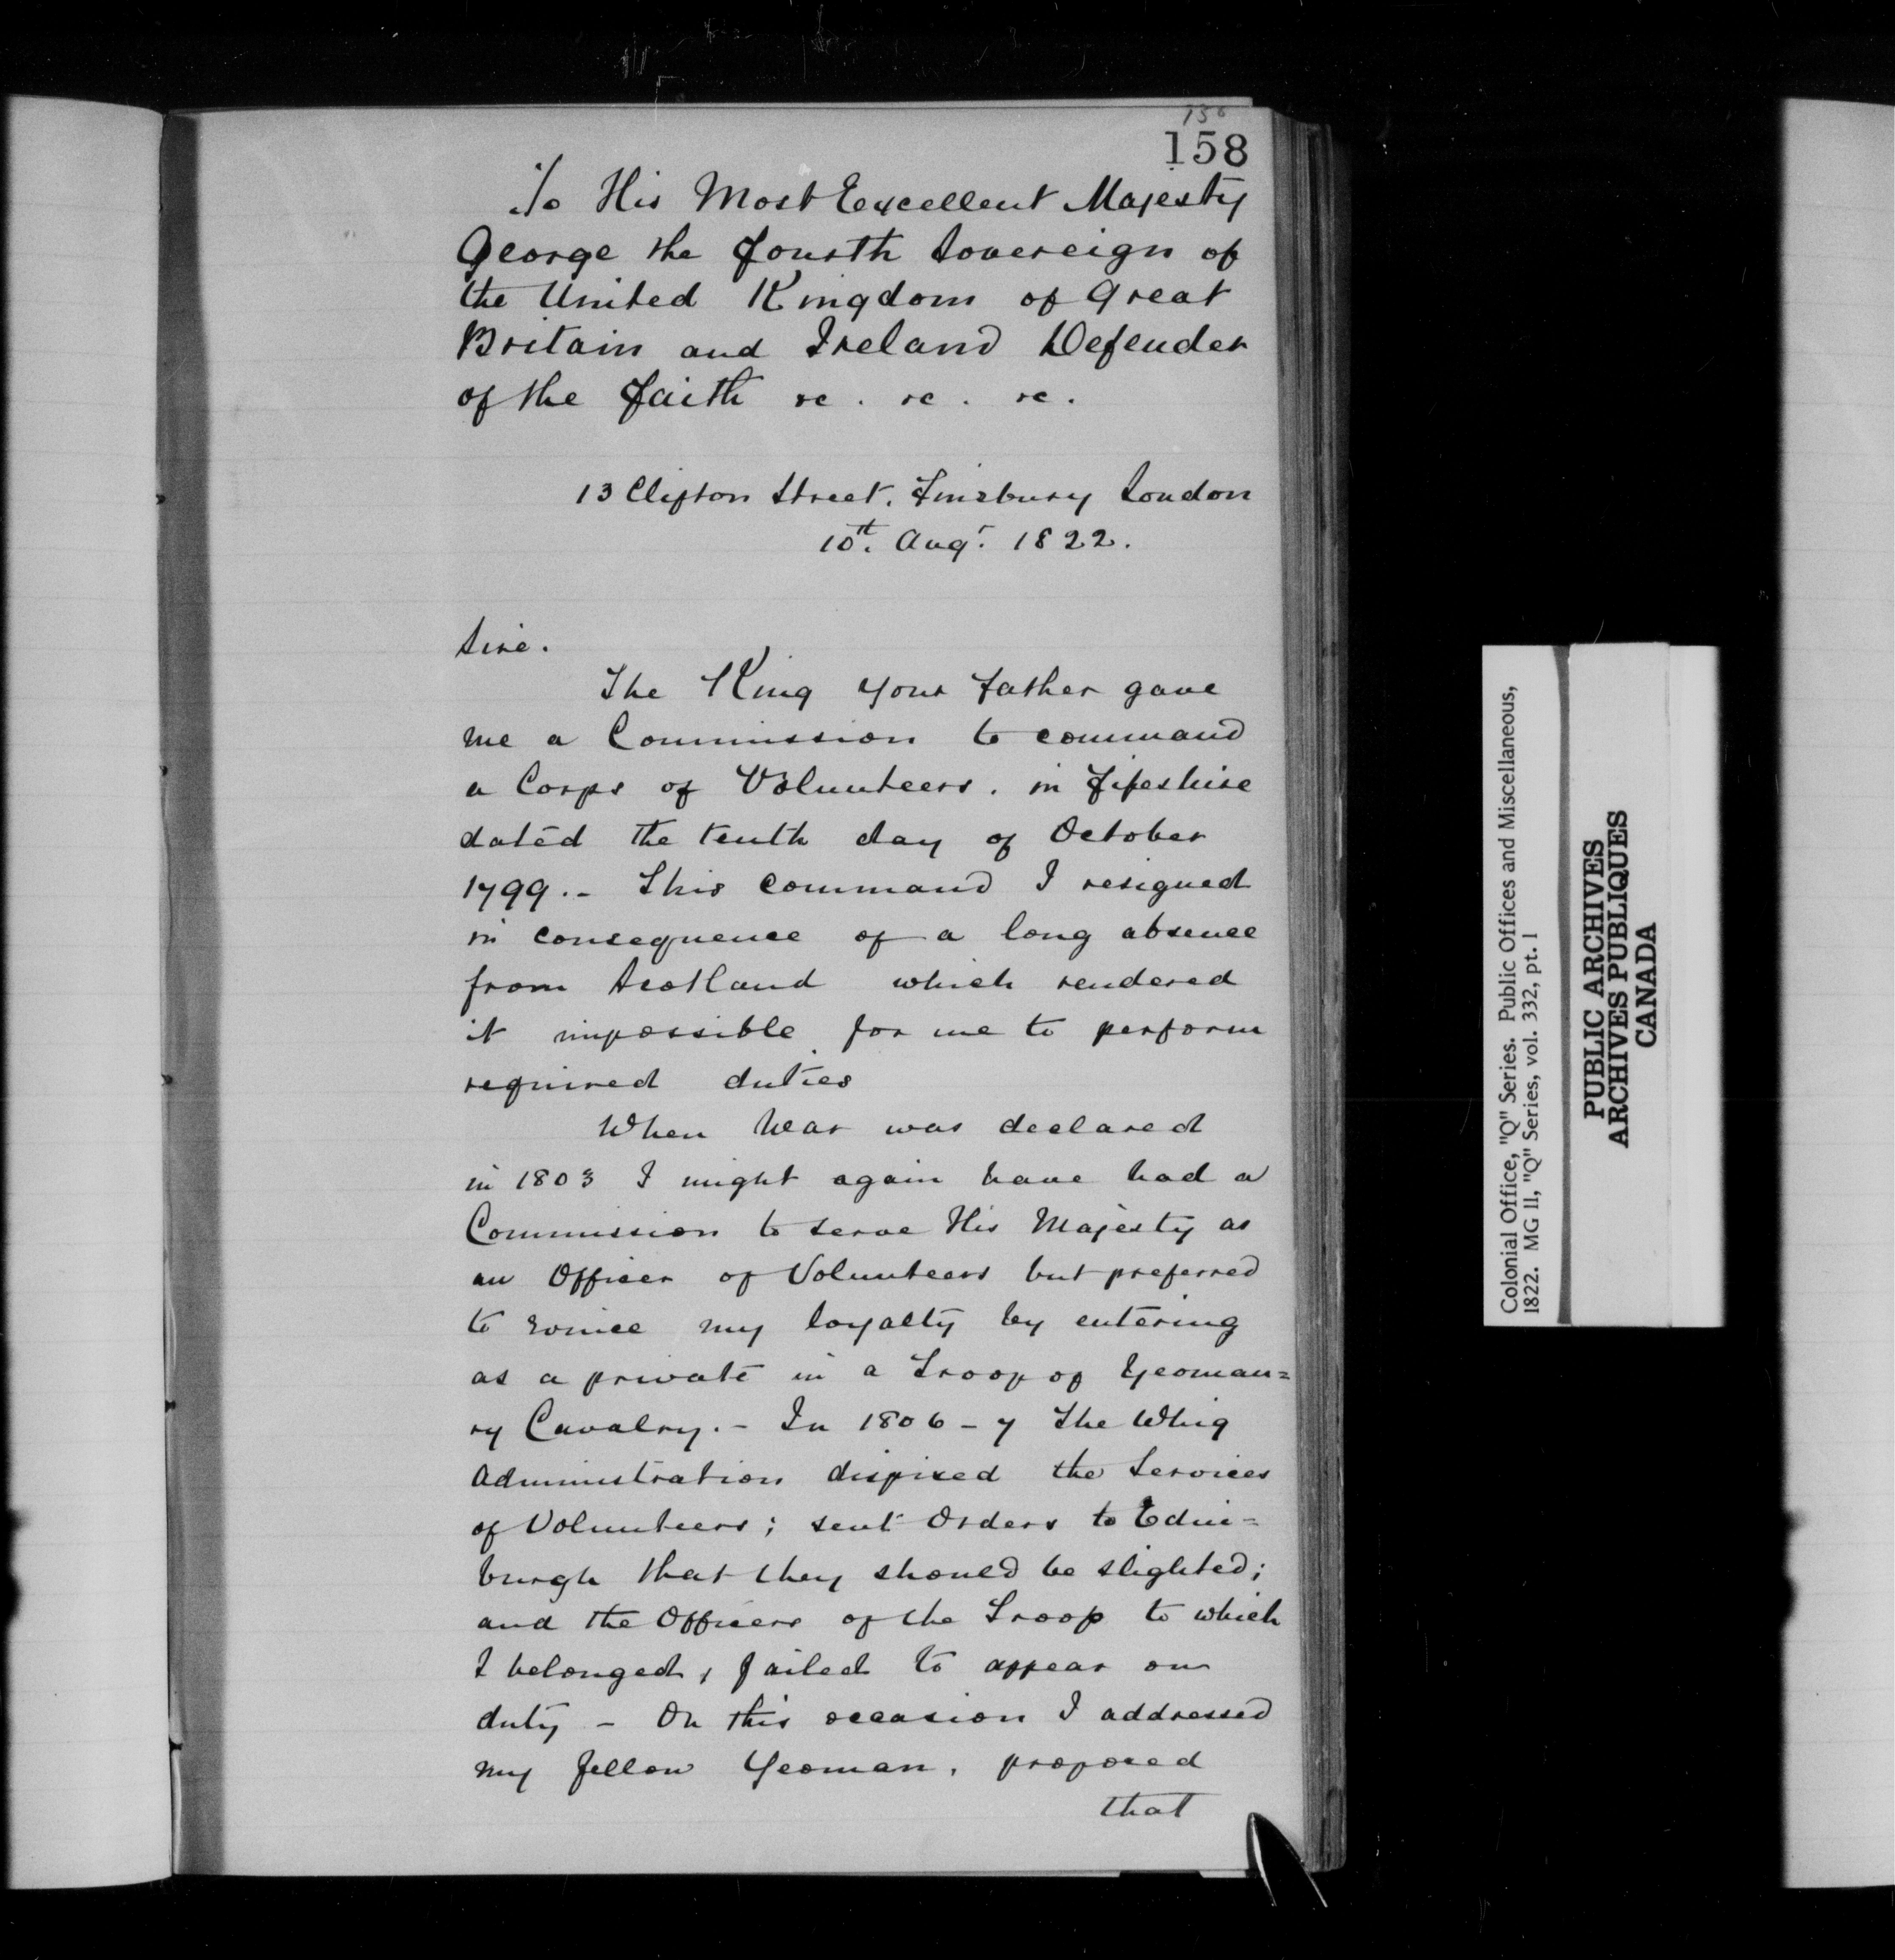 158
To His Most Excellent Majesty
George the Fourth Sovereign of
the United Kingdom of Great
Britain and Ireland Defender
of the Faith &c. &c. &c.
13 Clifton Street. Finsbury London
10th. Augt. 1822.
Sire.
The King your Father gave
me a Commission to command
a Corps of Volunteers. in Fifeshire
dated the tenth day of October
1799.- This command I resigned
in consequence of a long absence
from Scotland which rendered
it impossible for me to perform
required duties
When War was declared
in 1803 I might again have had a
Commission to serve His Majesty as
an Officer of Volunteers but preferred
to evince my loyalty by entering
as a private in a Troop of Yeoman=
ry Cavalry.- In 1806-7 The Whig
Administration dispised the Services
of Volunteers; sent Orders to Edin=
burgh that they should be slighted;
and the Officers of the Troop to which
I belonged, failed to appear on
duty - On this occasion I addressed
my fellow Yeoman, proposed
that
Colonial Office, "Q" Series. Public Offices and Miscellaneous,
1822. MG 11, "Q" Series, vol. 332, pt. 1
PUBLIC ARCHIVES
ARCHIVES PUBLIQUES
CANADA